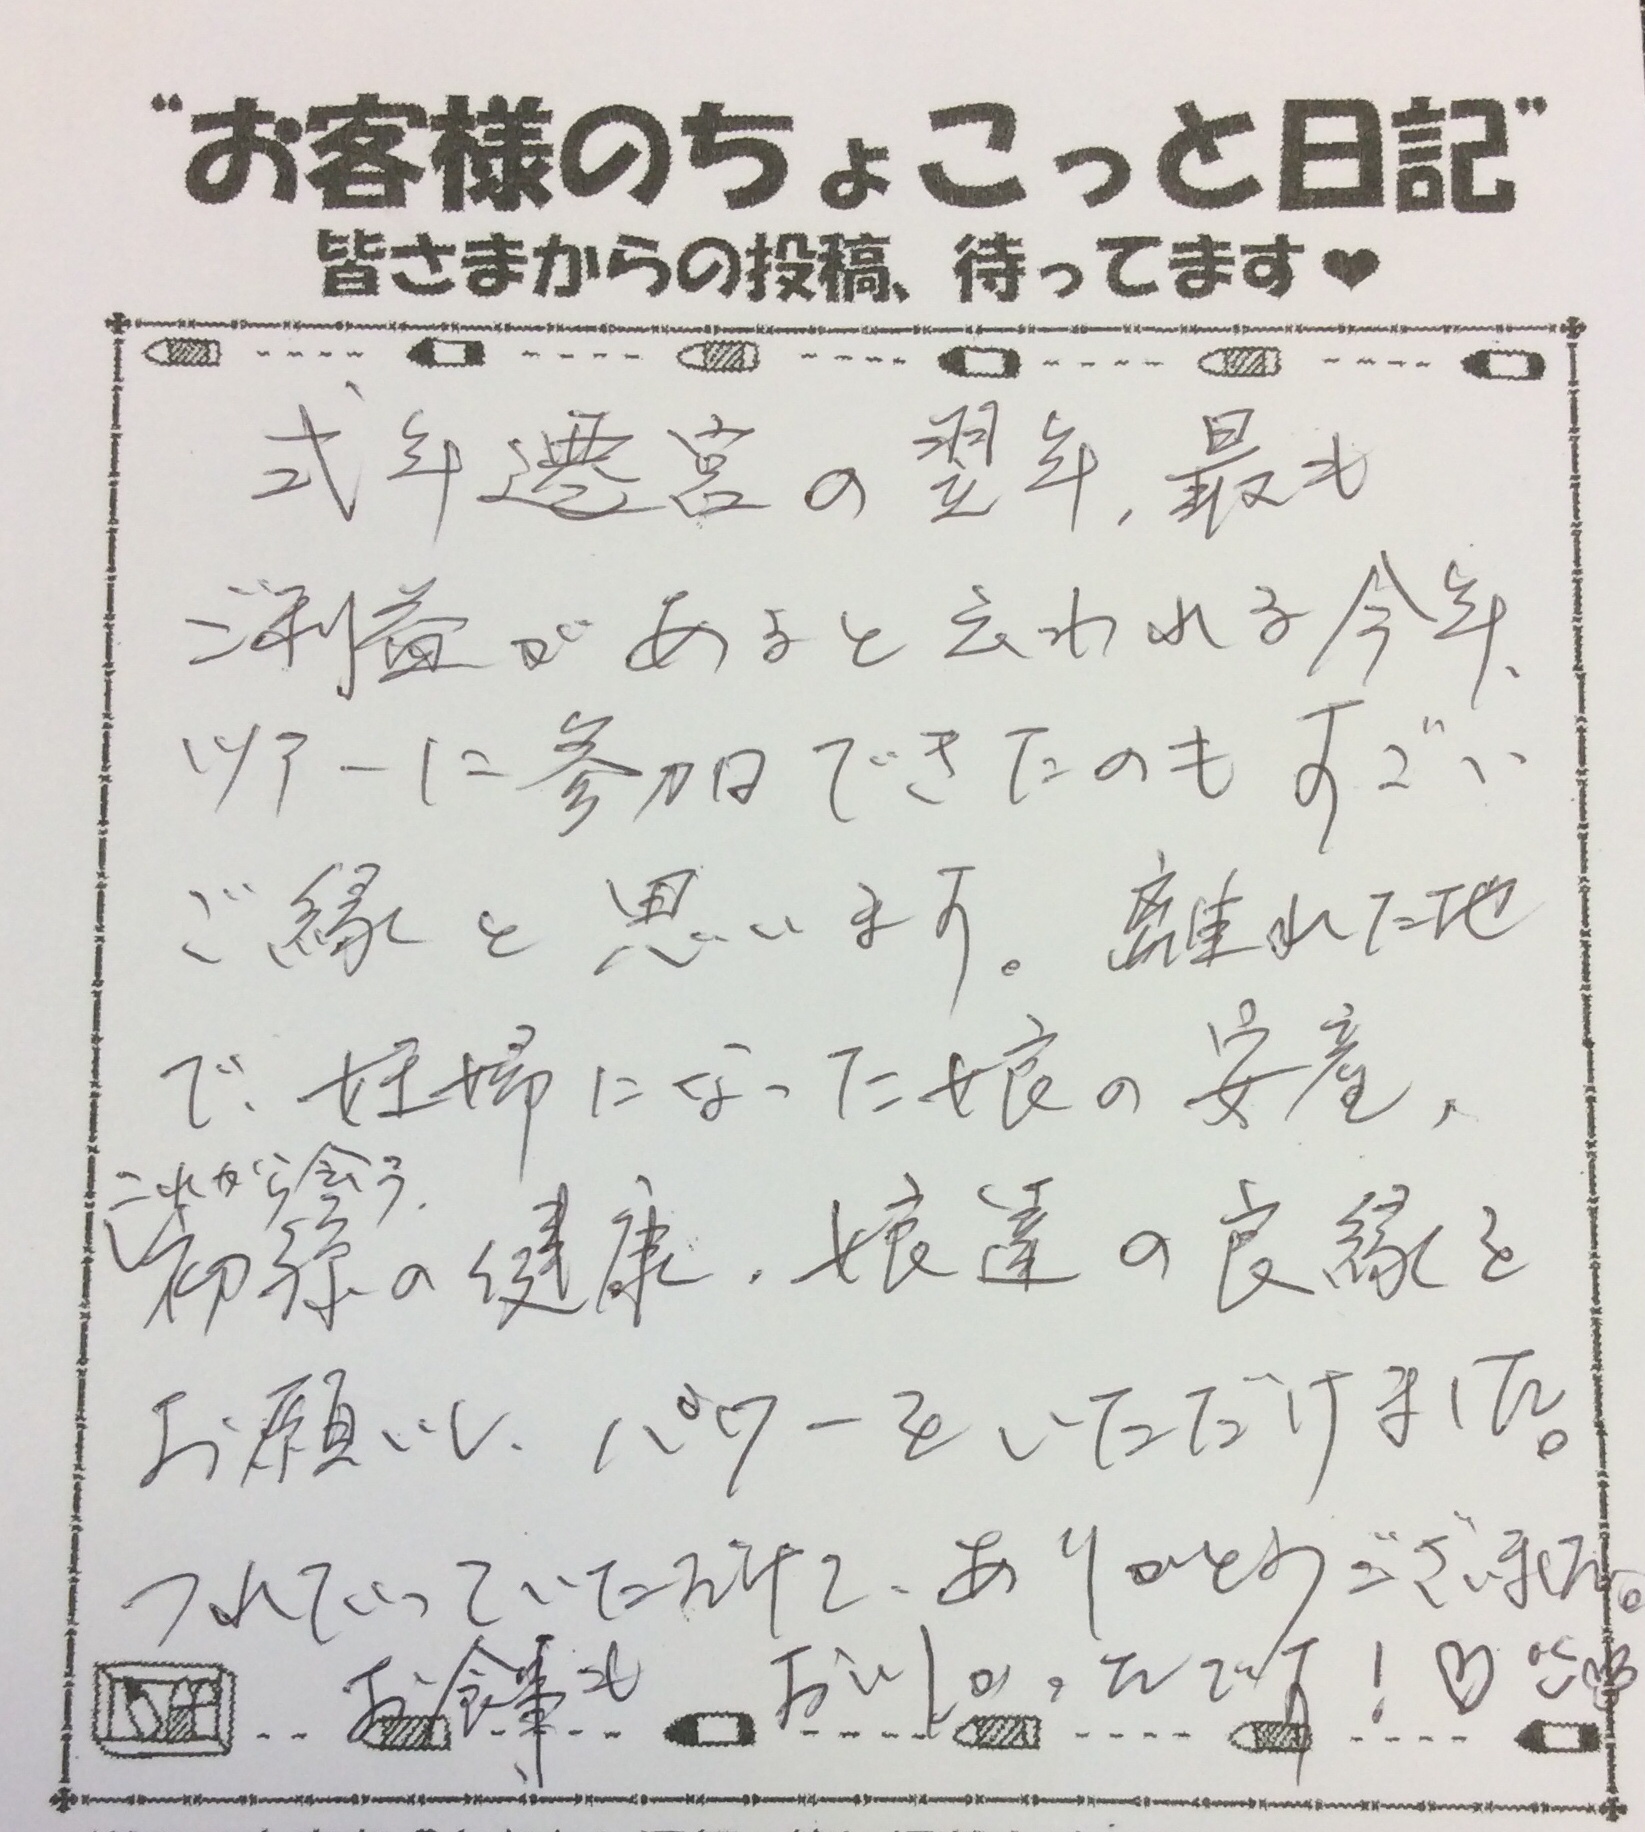 “お客様のちょこっと日記”
皆さまからの投稿、待ってます♥
式年遷宮の翌年、最も
ご利益があると云われる今年、
ツアーに参加できたのもすごい
ご縁と思います。離れた地
で、妊婦になった娘の安産、
これから会う、
初孫の健康、娘達の良縁を
お願いし、パワーをいただけました。
つれていっていただけて、ありがとうございました。
お食事も おいしかったです!♡